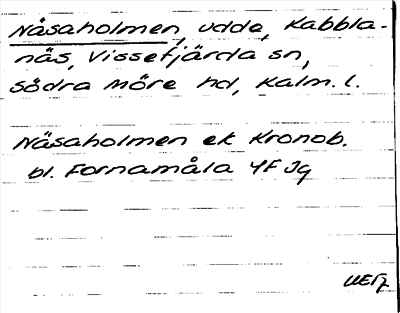 Näsaholmen, udde, Kabbla-
näs, Vissefjärda sn,
Södra Möre hd, Kalm. l.
Näsaholmen ek Kronob.
bl. Fornamåla 4F Jg